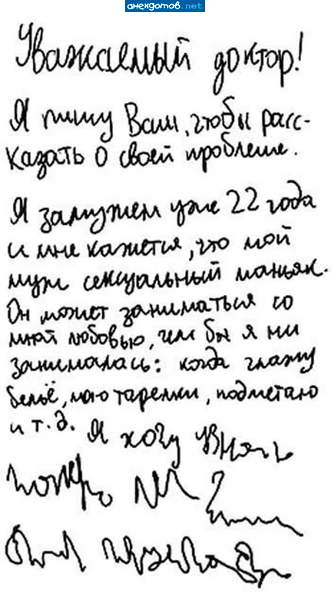 анекдотов.net
Уважаемый доктор!
Я пишу Вам, чтобы расс-
казать о своей проблеме.
Я замужем уже 22 года
и мне кажется, что мой
муж сексуальный маньяк.
Он может заниматься со
мной любовью, чем бы я ни
занималась: когда глажу
бельё, мою тарелки, подметаю
и т.д. Я хочу